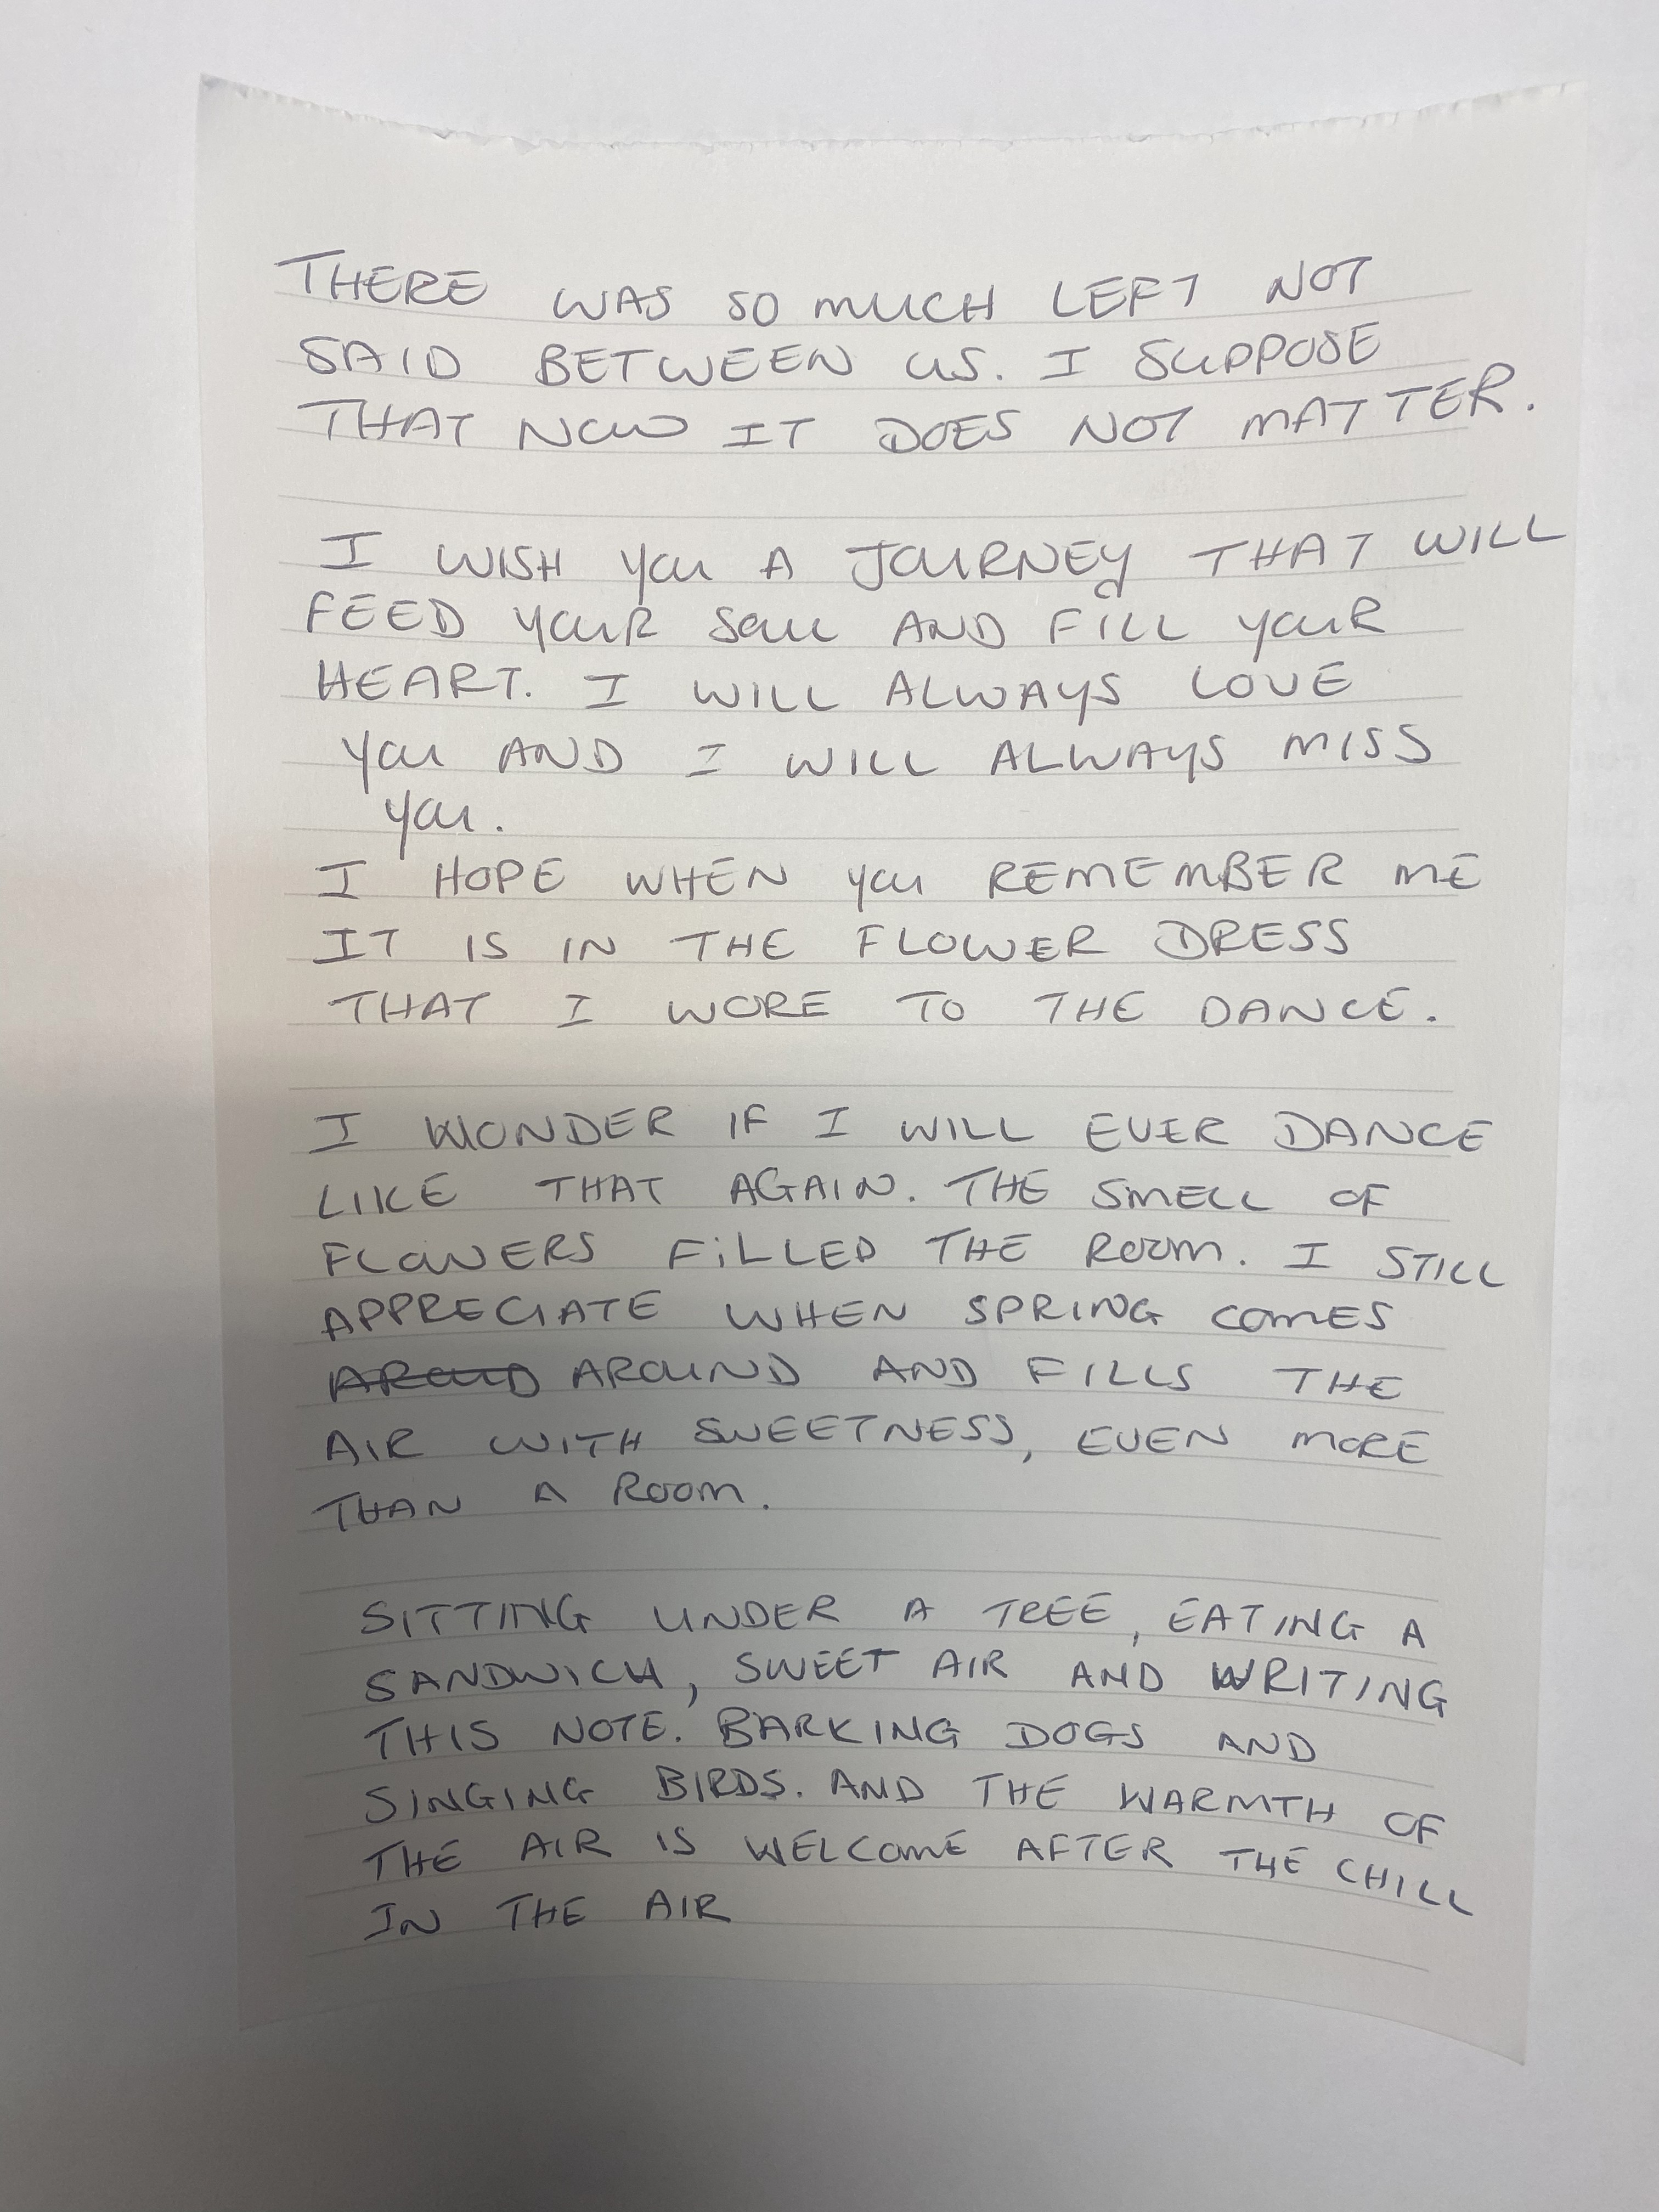 THERE WAS SO MUCH LEFT NOT
SAID BETWEEN US. I SUPPOSE
THAT NOW IT DOES NOT MATTER.
I WISH YOU A JOURNEY THAT WILL
FEED YOUR SOUL AND FILL YOUR
HEART. I WILL ALWAYS LOVE
YOU AND I WILL ALWAYS MISS
YOU.
I HOPE WHEN YOU REMEMBER ME
IT IS IN THE FLOWER DRESS
THAT I WORE TO THE DANCE.
I WONDER IF I WILL EVER DANCE
LIKE THAT AGAIN. THE SMELL OF
FLOWERS FILLED THE ROOM. I STILL
APPRECIATE WHEN SPRING COMES
AROUND AND FILLS THE
AIR WITH SWEETNESS, EVEN MORE
THAN A ROOM.
SITTING UNDER A TREE, EATING A
SANDWICH, SWEET AIR AND WRITING
THIS NOTE. BARKING DOGS AND
SINGING BIRDS. AND THE WARMTH OF
THE AIR IS WELCOME AFTER THE CHILL
IN THE AIR